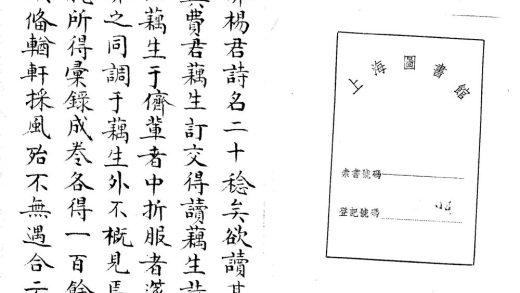 上海圖書館
索書號碼
登記號碼
楊君詩名二十稔矣欲讀其
費君藕生訂交得讀藕生詩
藕生于儕輩者中折服者
之同調于藕生外不概見焉
所得彙錄成卷各得一百餘
脩輶軒採風殆不無遇合